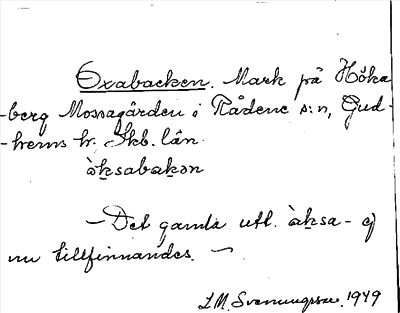 Oxabacken. Mark på Höka-
-berg Mossagården i Rådene s:n, Gud-
-hems hr. Skb. län.
ὰk̲sabak̲ən
– Det gamla utt. ὰk̲sa- ej
nu tillfinnandes. –
L M. Svenungsson. 1949